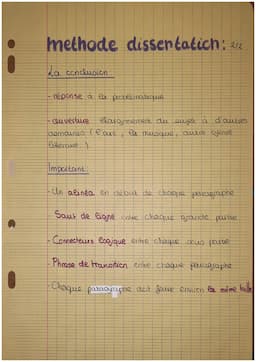 methode dissertation: 2/2
La conclusion
- réponse à la problématique
- ouverture élargissement du sujet à d'autres
domaines (l'art, la musique, autre genre
littéraire.)
Important:
- Un alinéa en début de chaque paragraphe
- Saut de ligne entre chaque grande partie
- Connecteurs logique entre chaque sous partie
- Phrase de transition entre chaque paragraphe
- Chaque paragraphe doit faire environ la même taille